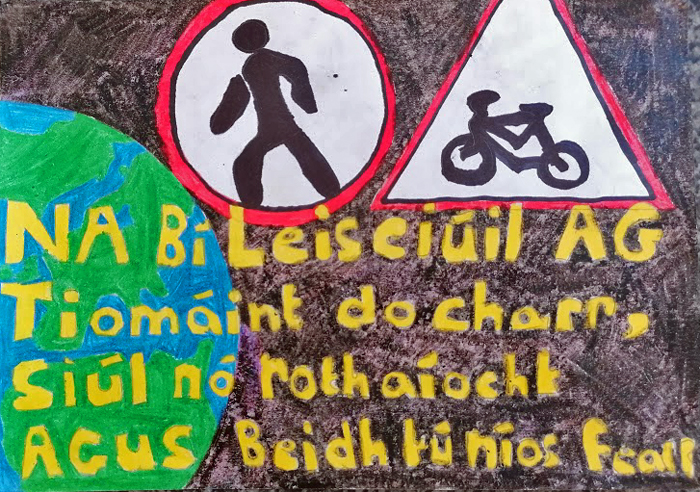 NA Bí Leisciúil AG
Tiomáint do charr,
Siúl nó rothaíocht
Agus Beidh tú níos fearr